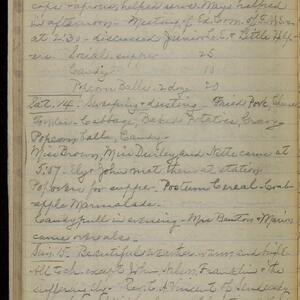 caps & aprons, helped serve. Mays helped
in afternoon - Meeting of Ed. Com. of
at 2:30 - discussed Juniors & Little Help-
ers. Social supper 25
Candy 10
Popcorn Balls - 2 doz 20
Sat. 14. Sweeping & dusting. Fried Pork
Cabbage, Baked Potatoes, Gravy
Popcorn balls, Candy -
Miss Brown, Miss and came at
5:07. & John met them at station.
Popovers for supper - Postum Cereal -
apple Marmalade -
Candy pull in evening - Mrs Benton & Marion
came
Sun. 15. Beautiful weather warm and bright
All to ch. except John, Helen, Franklin & the
Rev. L. A. Vincent of